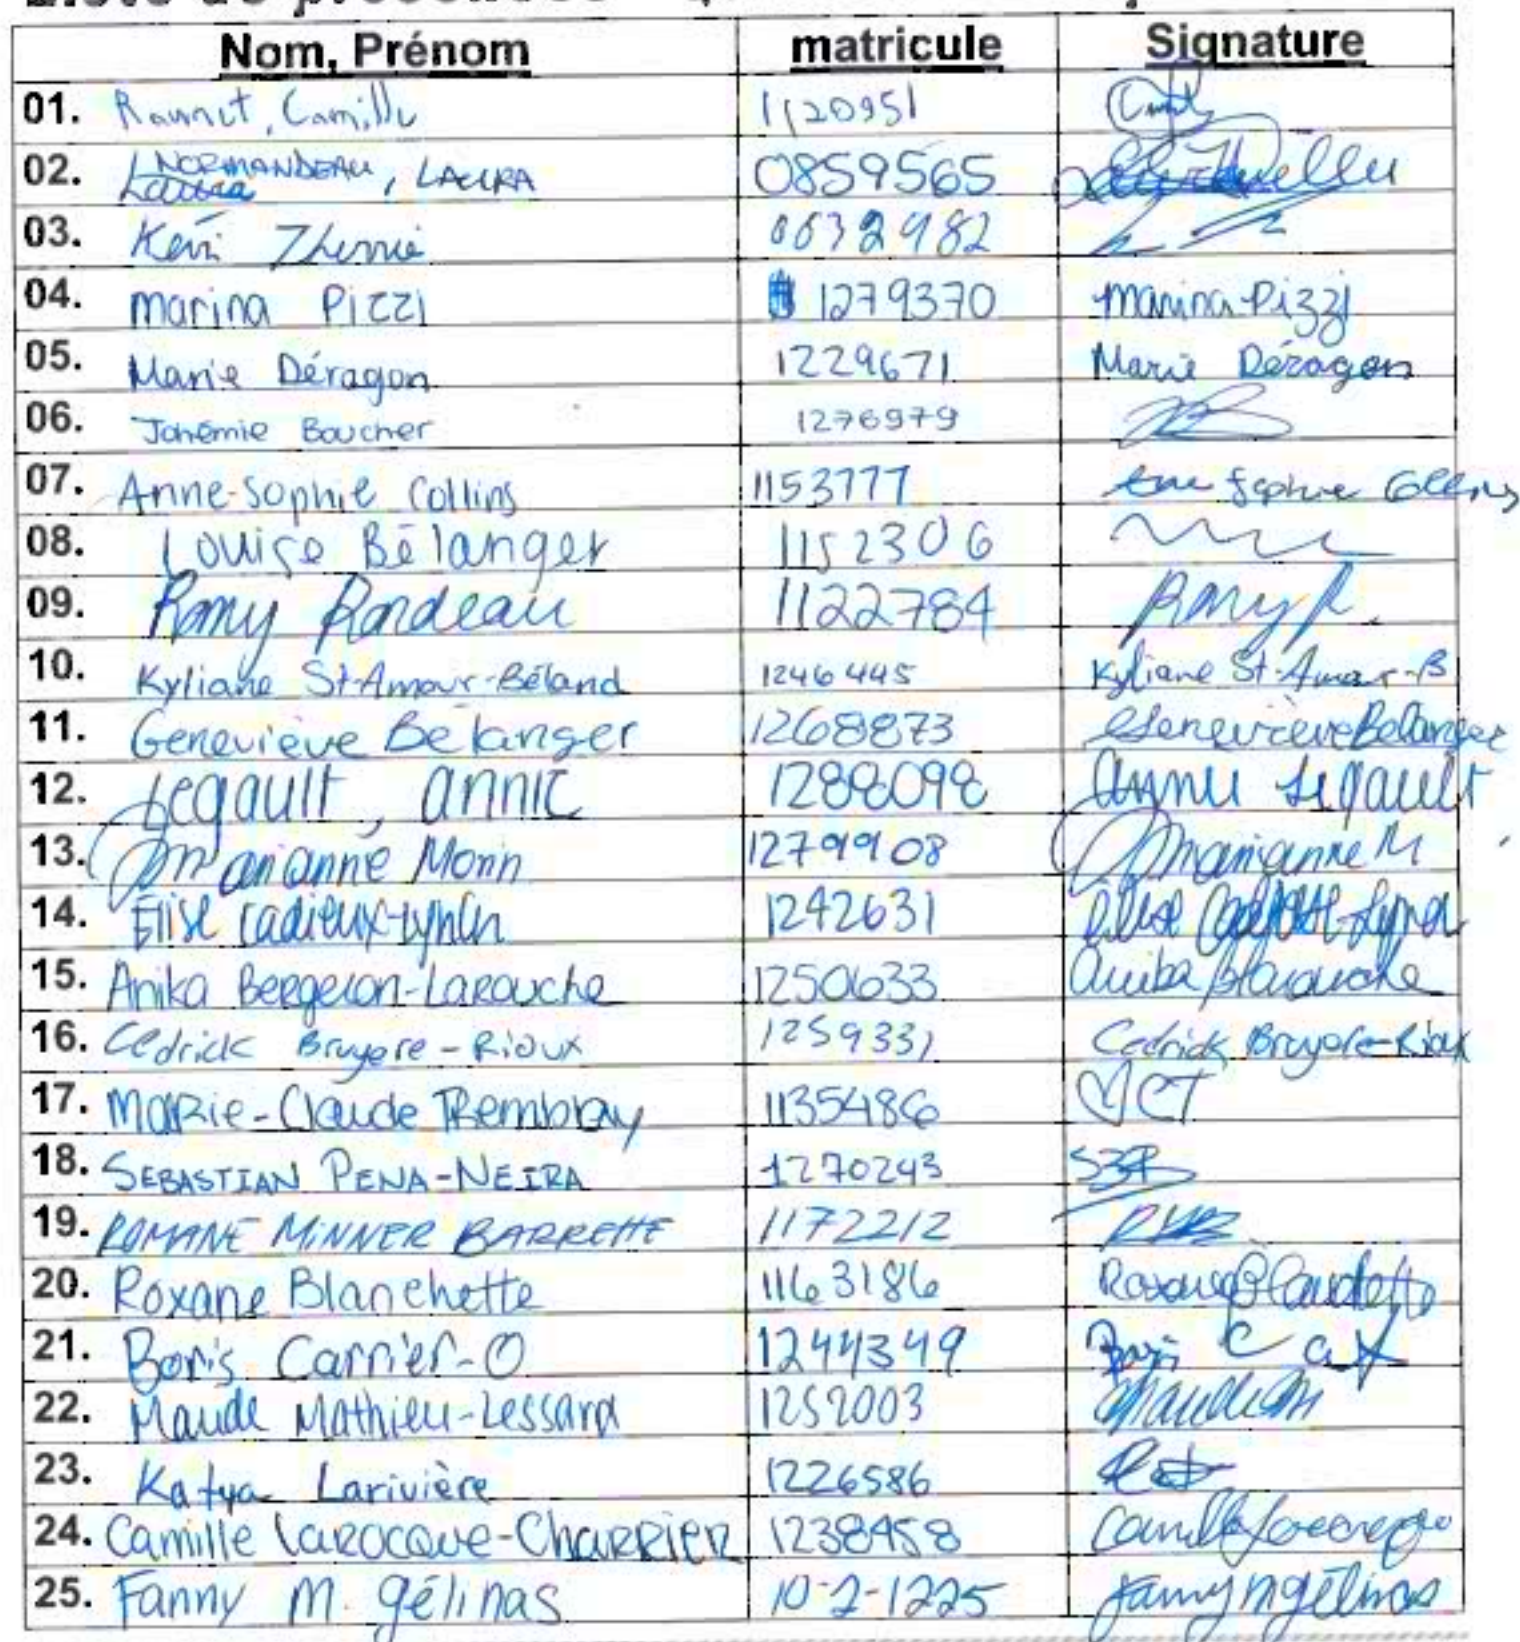 Liste de présences
Nom, Prénom matricule Signature
01. Camille 1120951
02. NORMANDEAU, LAURA 0859565
03. Kevi Therrie
04. Marina Pizzi 1279370 Marina Pizzi
05. Marie Déragon 1229671 Marie Déragon
06. Johémie Boucher 1276979
07. Anne-Sophie Collins 1153777 Anne Sophie Collins
08. Louise Bélanger 1152306
09. Romy Rondeau 1122784 Romy R.
10. Kyliane St-Amour-Béland 1246445 Kyliane St-Amour-B
11. Geneviève Bélanger 1268873 Geneviève Bélanger
12. Legault, annic 1288098 annic Legault
13. Marianne Morin 1279908 Marianne M
14. Élise Cadieux-Lynch 1242631
15. Anika Bergeron-Larouche 1250633
16. Cedrick Bruyere-Rioux 1259331 Cedrick Bruyere-Rioux
17. Marie-Claude Tremblay 1135486 MCT
18. SEBASTIAN PENA-NEIRA 1270243
19. ROMANE MINNER BARRETTE 1172212
20. Roxane Blanchette 1163186 Roxane Blanchette
21. Boris Carrier-O 1244349
22. Maude Mathieu-Lessard 1252003 Maude M
23. Katya Larivière 1226586
24. Camille Larocque-Charrier 1238458 Camille Larocque
25. Fanny M. Gélinas 10-2-1225 Fanny M Gélinas